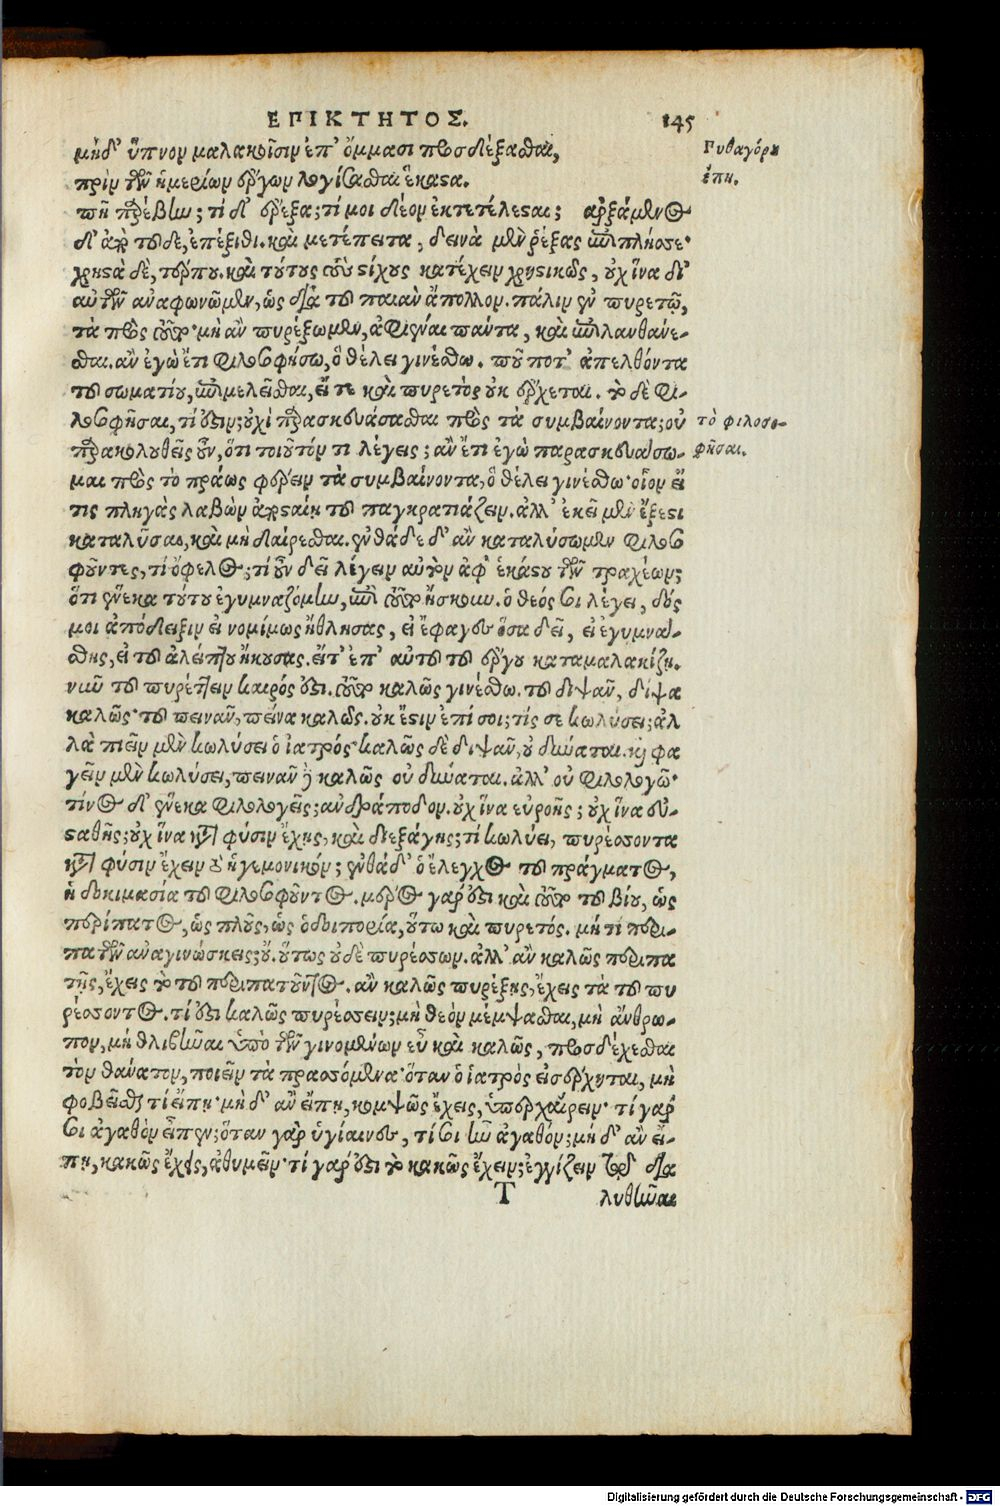 ΕΠΙΚΤΗΤΟΣ. 145
μηδ' ὕπνον μαλακοῖσιν ἐπ' ὄμμασι προσδέξασθαι, Πυθαγόρου
πρὶν τῶν ἡμερίων ἔργων λογίσασθαι ἕκαστα. ἔπη.
πῆ παρέβην; τί δ' ἔρεξα; τί μοι δέον ἐκτετέλεσται; ἀρξάμενος
δ' ἀπὸ τοῦδε, ἐπέξιθι. καὶ μετέπειτα, δεινὰ μὲν ῥέξας ἐπιπλήσσε·
χρηστὰ δὲ, τέρπου. καὶ τούτους τοὺς στίχους κατέχειν χρηστικῶς, οὐχ ἵνα δι'
αὐτῶν ἀναφωνῶμεν, ὡς διὰ τοῦ παιὰν ἄπολλον. πάλιν ἐν πυρετῷ,
τὰ πρὸς τοῦτο· μὴ ἂν πυρέξωμεν, ἀφιέναι πάντα, καὶ ἐπιλανθάνε-
σθαι. ἂν ἐγὼ ἔτι φιλοσοφήσω, ὃ θέλει γινέσθω. ποῦ ποτ' ἀπελθόντα
τοῦ σωματίου, ἐπιμελεῖσθαι, εἴ τε καὶ πυρετὸς οὐκ ἔρχεται. τὸ δὲ φι-
λοσοφῆσαι, τί ἐστιν; οὐχὶ παρασκευάσασθαι πρὸς τὰ συμβαίνοντα; οὐ τὸ φιλοσο-
παρακολουθεῖς οὖν, ὅτι τοιοῦτόν τι λέγεις; ἂν ἔτι ἐγὼ παρασκευάσω- φῆσαι.
μαι πρὸς τὸ πράως φέρειν τὰ συμβαίνοντα, ὃ θέλει γινέσθω· οἷον εἴ
τις πληγὰς λαβὼν ἀποσταίη τοῦ παγκρατιάζειν. ἀλλ' ἐκεῖ μὲν ἔξεστι
καταλῦσαι, καὶ μὴ δαίρεσθαι. ἐνθάδε δ' ἂν καταλύσωμεν φιλοσο
φοῦντες, τί ὄφελος; τί οὖν δεῖ λέγειν αὐτὸν ἀφ' ἑκάστου τῶν τραχέων;
ὅτι ἕνεκα τούτου ἐγυμναζόμην, ἐπὶ τοῦτο ἤσκουν. ὁ θεός σοι λέγει, δός
μοι ἀπόδειξιν εἰ νομίμως ἤθλησας, εἰ ἔφαγες ὅσα δεῖ, εἰ ἐγυμνά-
σθης, εἰ τοῦ ἀλείπτου ἤκουσας. εἶτ' ἐπ' αὐτοῦ τοῦ ἔργου καταμαλακίζῃ.
νῦν τοῦ πυρέττειν καιρός ἐστι. τοῦτο καλῶς γινέσθω. τοῦ διψᾶν, δίψα
καλῶς· τοῦ πεινᾶν, πείνα καλῶς. οὐκ ἔστιν ἐπί σοι; τίς σε κωλύσει; ἀλ
λὰ πιεῖν μὲν κωλύσει ὁ ἰατρός· καλῶς δὲ διψᾶν, οὐ δύναται. καὶ φα
γεῖν μὲν κωλύσει, πεινᾶν δὲ καλῶς οὐ δύναται. ἀλλ' οὐ φιλολογῶ·
τίνος δ' ἕνεκα φιλολογεῖς; ἀνδράποδον. οὐχ ἵνα εὐροῇς; οὐχ ἵνα εὐ-
σταθῇς; οὐχ ἵνα κατὰ φύσιν ἔχῃς, καὶ διεξάγῃς; τί κωλύει, πυρέσσοντα
κατὰ φύσιν ἔχειν τὸ ἡγεμονικόν; ἐνθάδ' ὁ ἔλεγχος τοῦ πράγματος,
ἡ δοκιμασία τοῦ φιλοσοφοῦντος. μέρος γάρ ἐστι καὶ τοῦτο τοῦ βίου, ὡς
περίπατος, ὡς πλοῦς, ὡς ὁδοιπορία, οὕτω καὶ πυρετός. μή τι περι-
πατῶν ἀναγινώσκεις; οὔ. οὕτως οὐδὲ πυρέσσων. ἀλλ' ἂν καλῶς περιπα
τῇς, ἔχεις τὸ τοῦ περιπατοῦντος. ἂν καλῶς πυρέξῃς, ἔχεις τὰ τοῦ πυ
ρέσσοντος. τί ἐστι καλῶς πυρέσσειν; μὴ θεὸν μέμψασθαι, μὴ ἄνθρω-
πον, μὴ θλιβῆναι ὑπὸ τῶν γινομένων εὖ καὶ καλῶς, προσδέχεσθαι
τὸν θάνατον, ποιεῖν τὰ προσόμενα· ὅταν ὁ ἰατρὸς εἰσέρχηται, μὴ
φοβεῖσθαι τί εἴπῃ· μηδ' ἂν εἴπῃ, κομψῶς ἔχεις, ὑπερχαίρειν· τί γάρ
σοι ἀγαθὸν εἶπεν; ὅταν γὰρ ὑγίαινες, τί σοι ἦν ἀγαθόν; μηδ' ἂν εἴ-
πῃ, κακῶς ἔχεις, ἀθυμεῖν· τί γάρ ἐστι τὸ κακῶς ἔχειν; ἐγγίζειν τῷ δια
Τ λυθῆναι
Digitalisierung gefördert durch die Deutsche Forschungsgemeinschaft - DFG